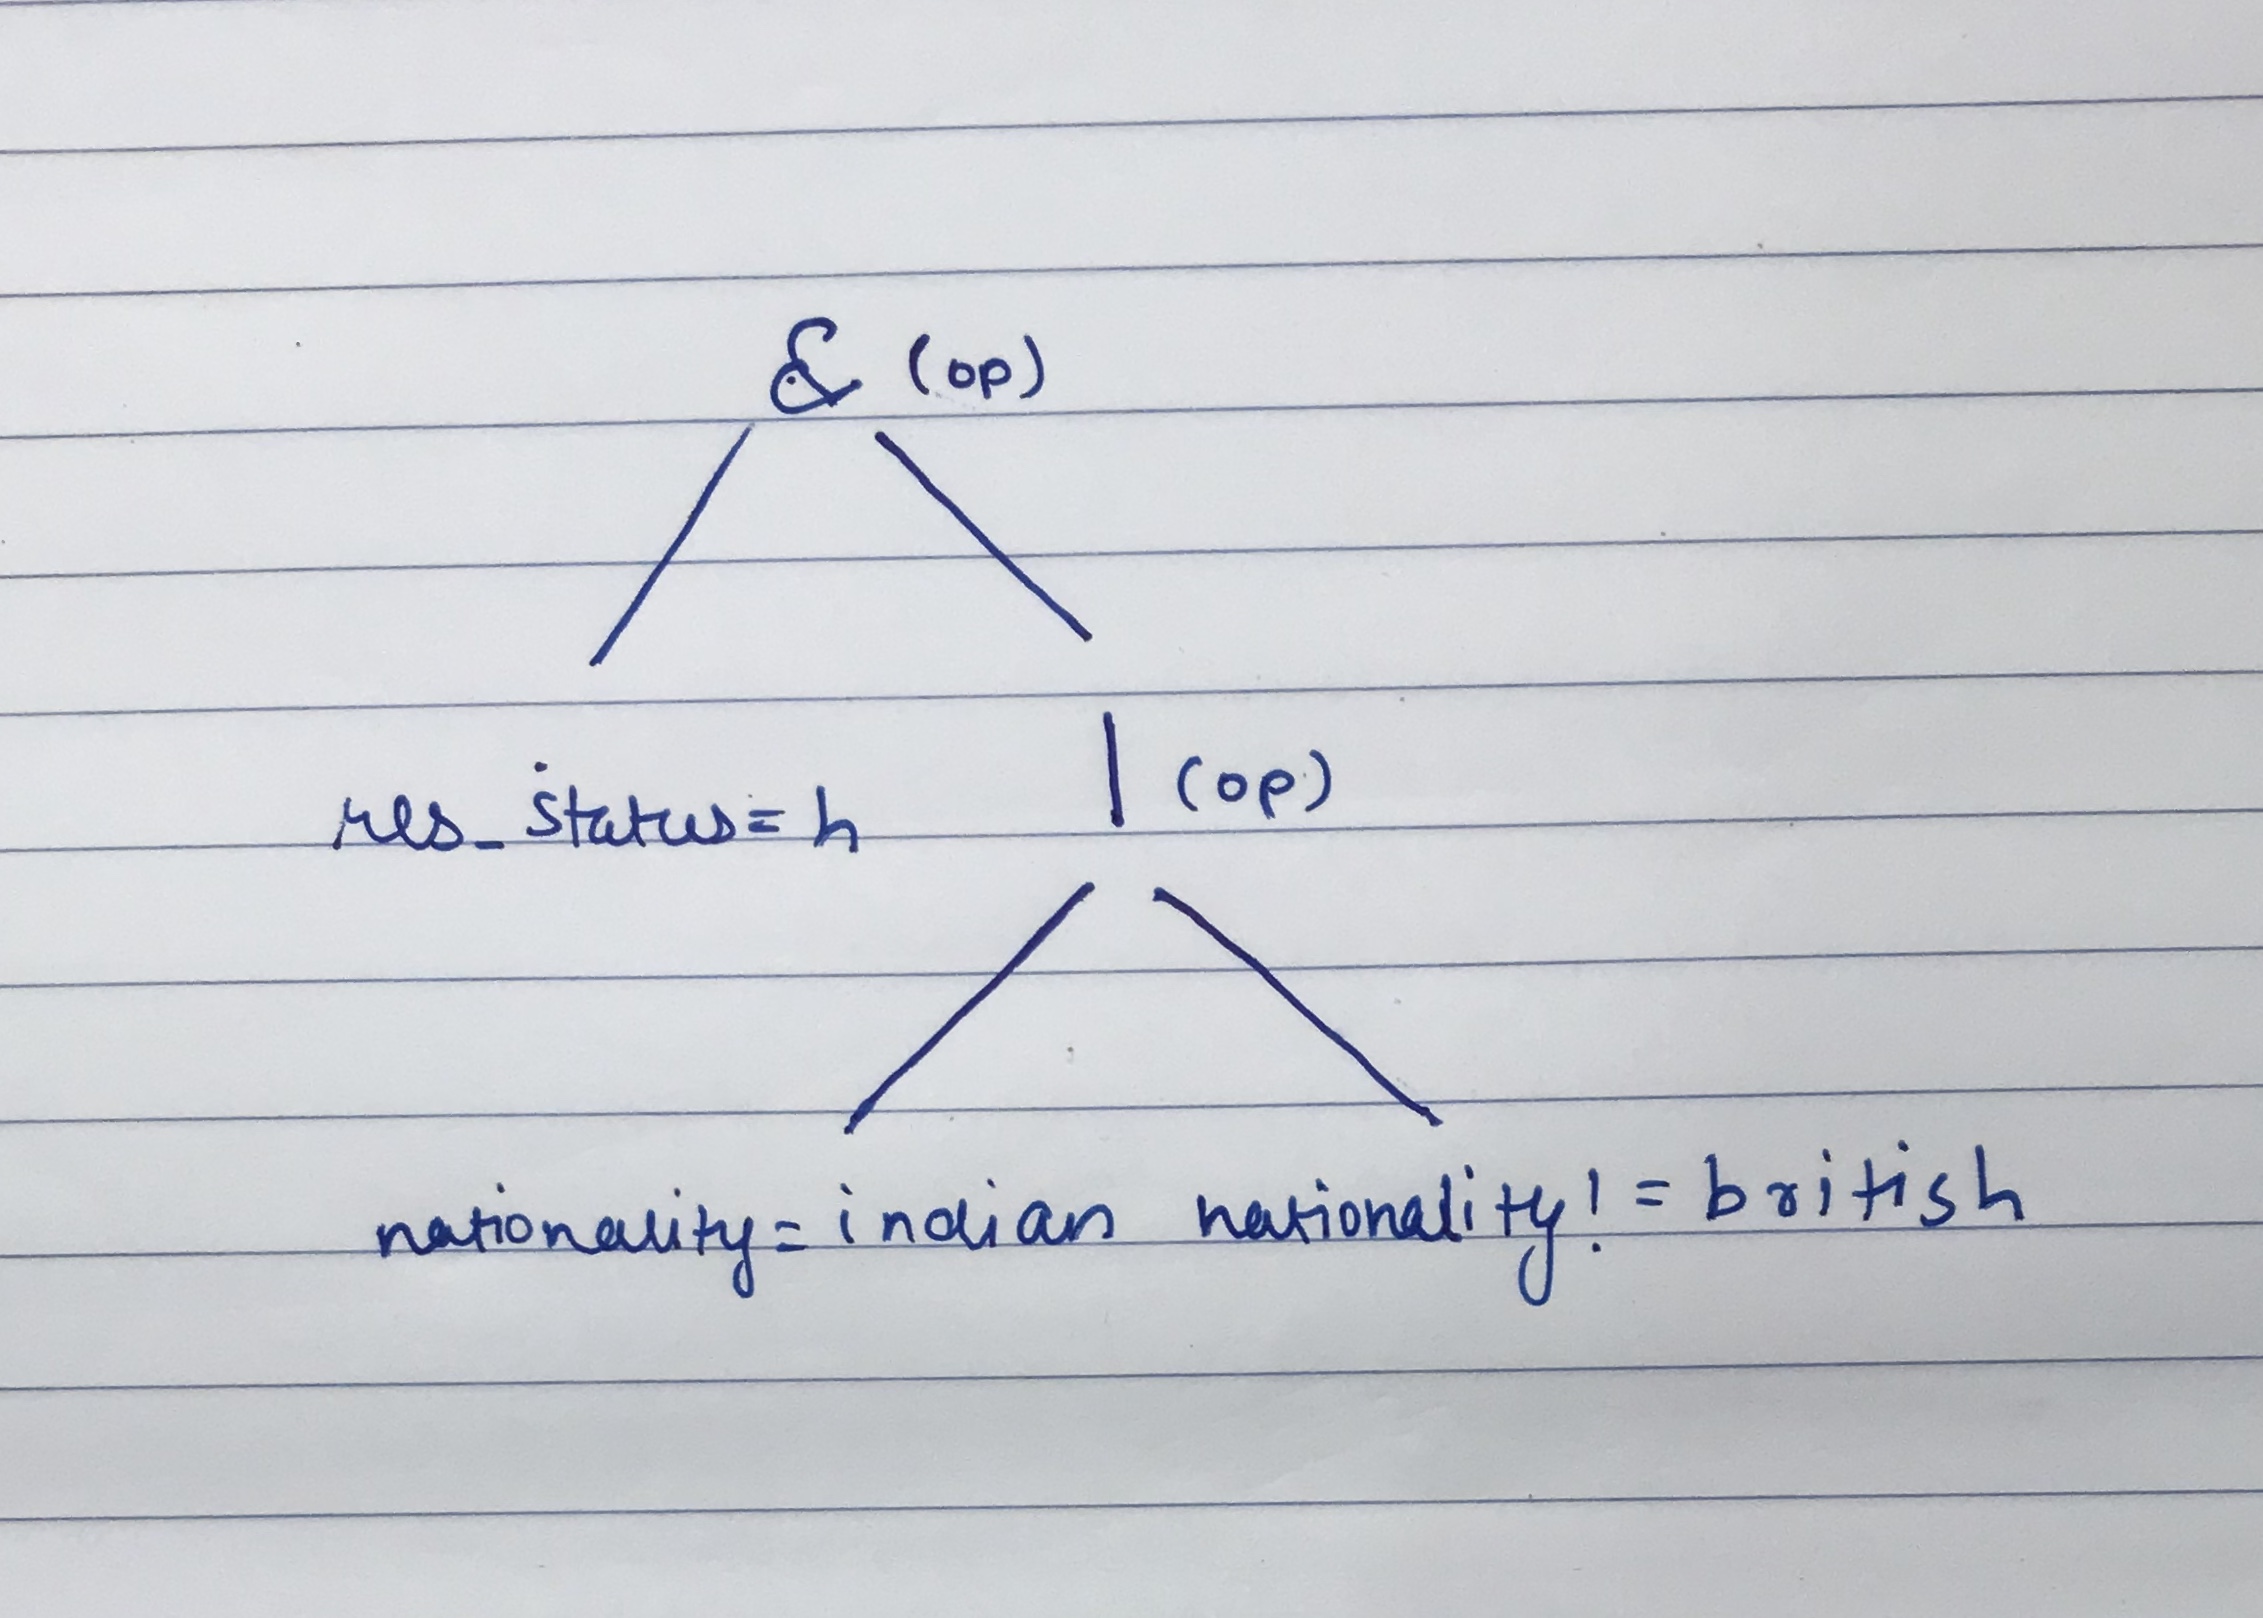 & (op)
res_status=h | (op)
nationality=indian nationality!=british